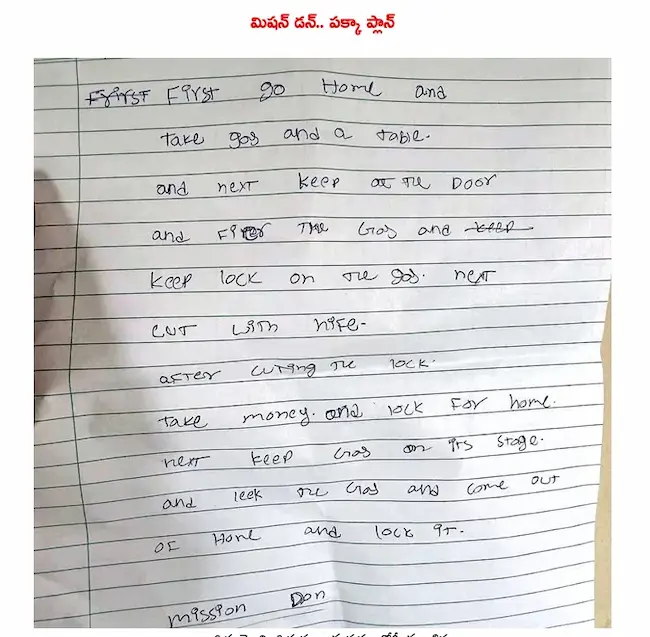 మిషన్ డన్.. పక్కా ప్లాన్
First First go Home and
Take gas and a table.
and next keep at the Door
and Firer The Gas and keep
keep lock on the gas. next
cut with nife.
after cuting the lock.
Take money. and lock for home.
next keep Gas on its stage.
and leek the Gas and come out
of Home and lock it.
mission Don